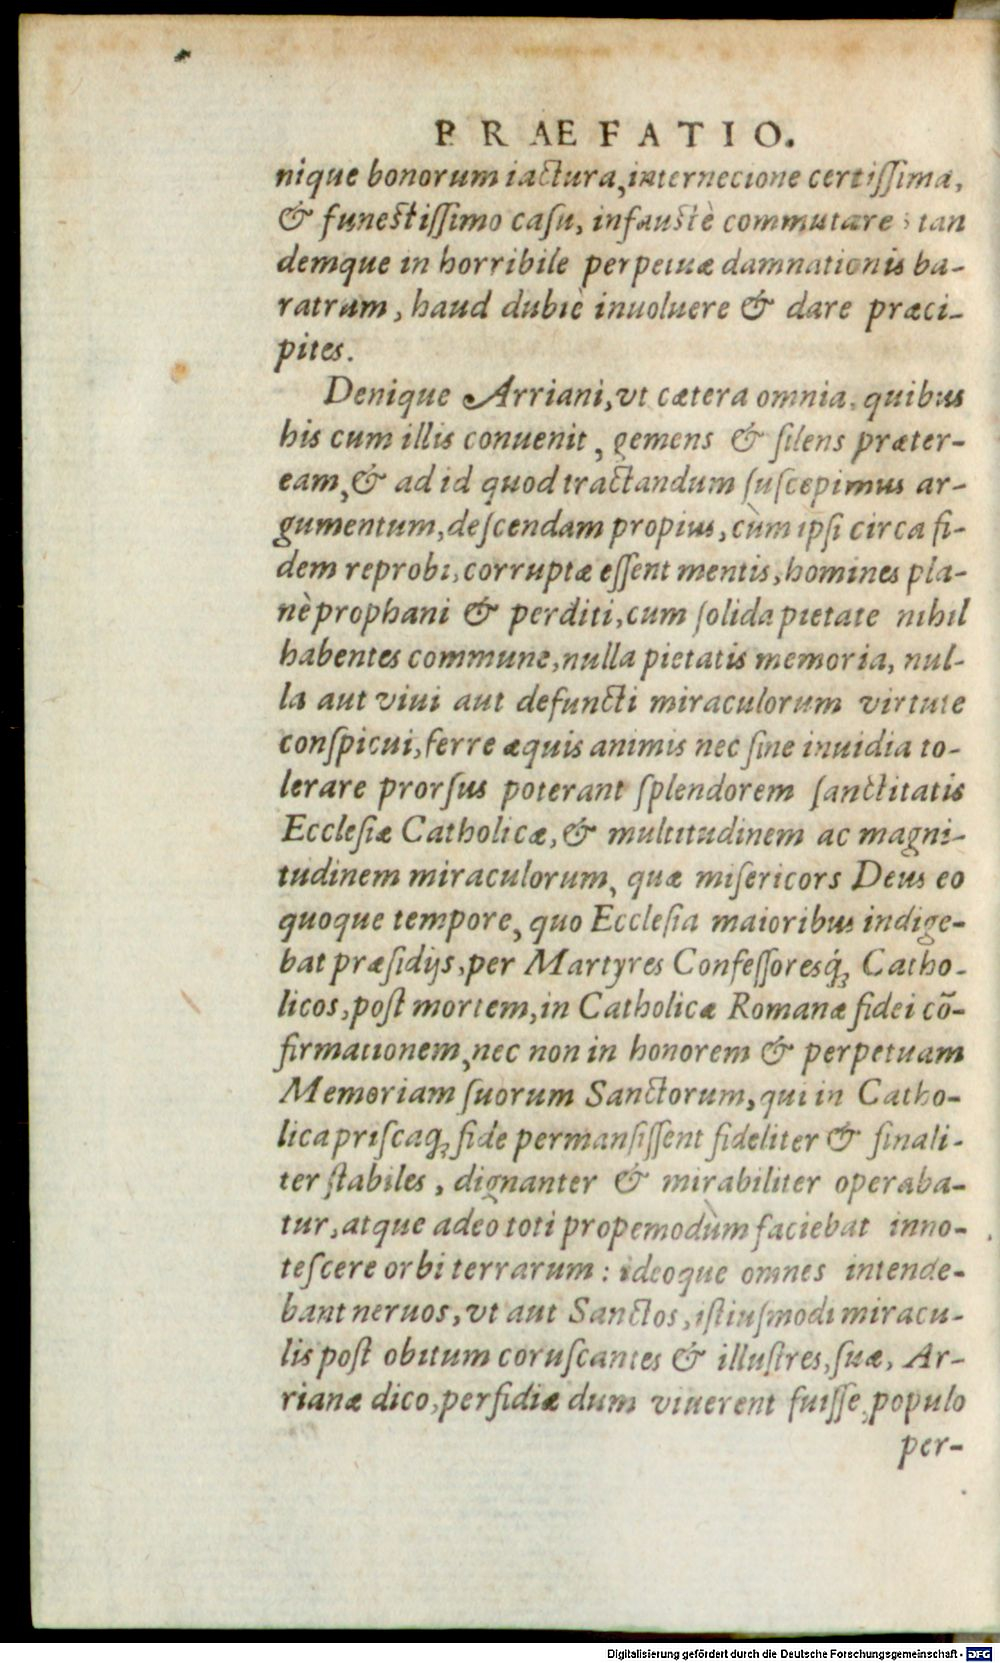 PRAEFATIO.
nique bonorum iactura, internecione certissima,
& funestissimo casu, infaustè commutare; tan
demque in horribile perpetuæ damnationis ba-
ratrum, haud dubiè inuoluere & dare præci-
pites.
Denique Arriani, vt cætera omnia, quibus
his cum illis conuenit, gemens & silens præter-
eam, & ad id quod tractandum suscepimus ar-
gumentum, descendam propius, cùm ipsi circa fi-
dem reprobi, corruptæ essent mentis, homines pla-
nè prophani & perditi, cum solida pietate nihil
habentes commune, nulla pietatis memoria, nul-
la aut viui aut defuncti miraculorum virtute
conspicui, ferre æquis animis nec sine inuidia to-
lerare prorsus poterant splendorem sanctitatis
Ecclesiæ Catholicæ, & multitudinem ac magni-
tudinem miraculorum, quæ misericors Deus eo
quoque tempore, quo Ecclesia maioribus indige-
bat præsidijs, per Martyres Confessoresq́; Catho-
licos, post mortem, in Catholicæ Romanæ fidei cō-
firmationem, nec non in honorem & perpetuam
Memoriam suorum Sanctorum, qui in Catho-
lica priscaq; fide permansissent fideliter & finali-
ter stabiles, dignanter & mirabiliter operaba-
tur, atque adeo toti propemodùm faciebat inno-
tescere orbi terrarum: ideoque omnes intende-
bant neruos, vt aut Sanctos, istiusmodi miracu-
lis post obitum coruscantes & illustres, suæ, Ar-
rianæ dico, perfidiæ dum viuerent fuisse, populo
per-
Digitalisierung gefördert durch die Deutsche Forschungsgemeinschaft - DFG